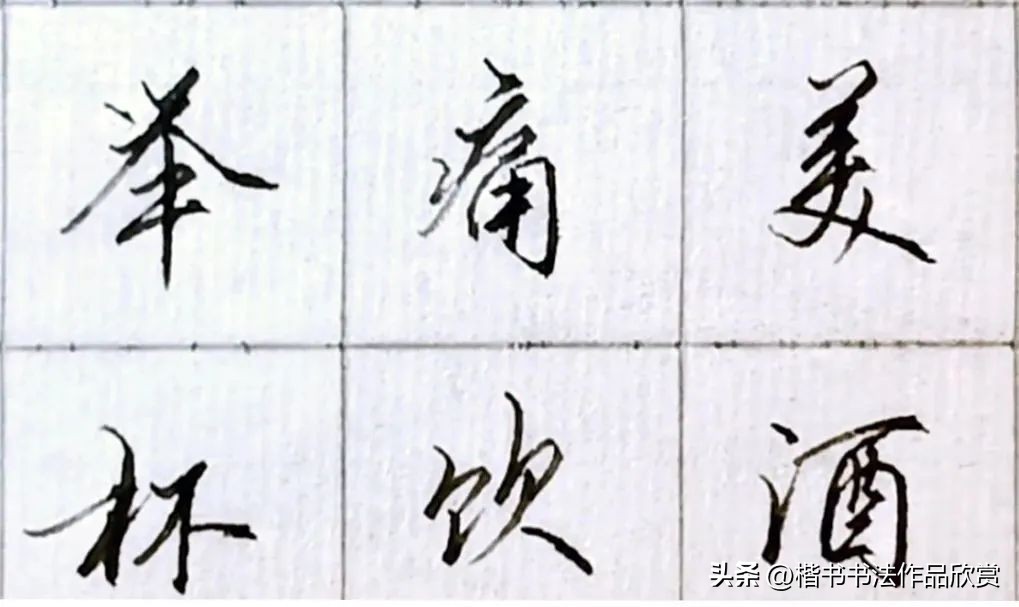 举痛美
杯饮酒
头条 @楷书书法作品欣赏